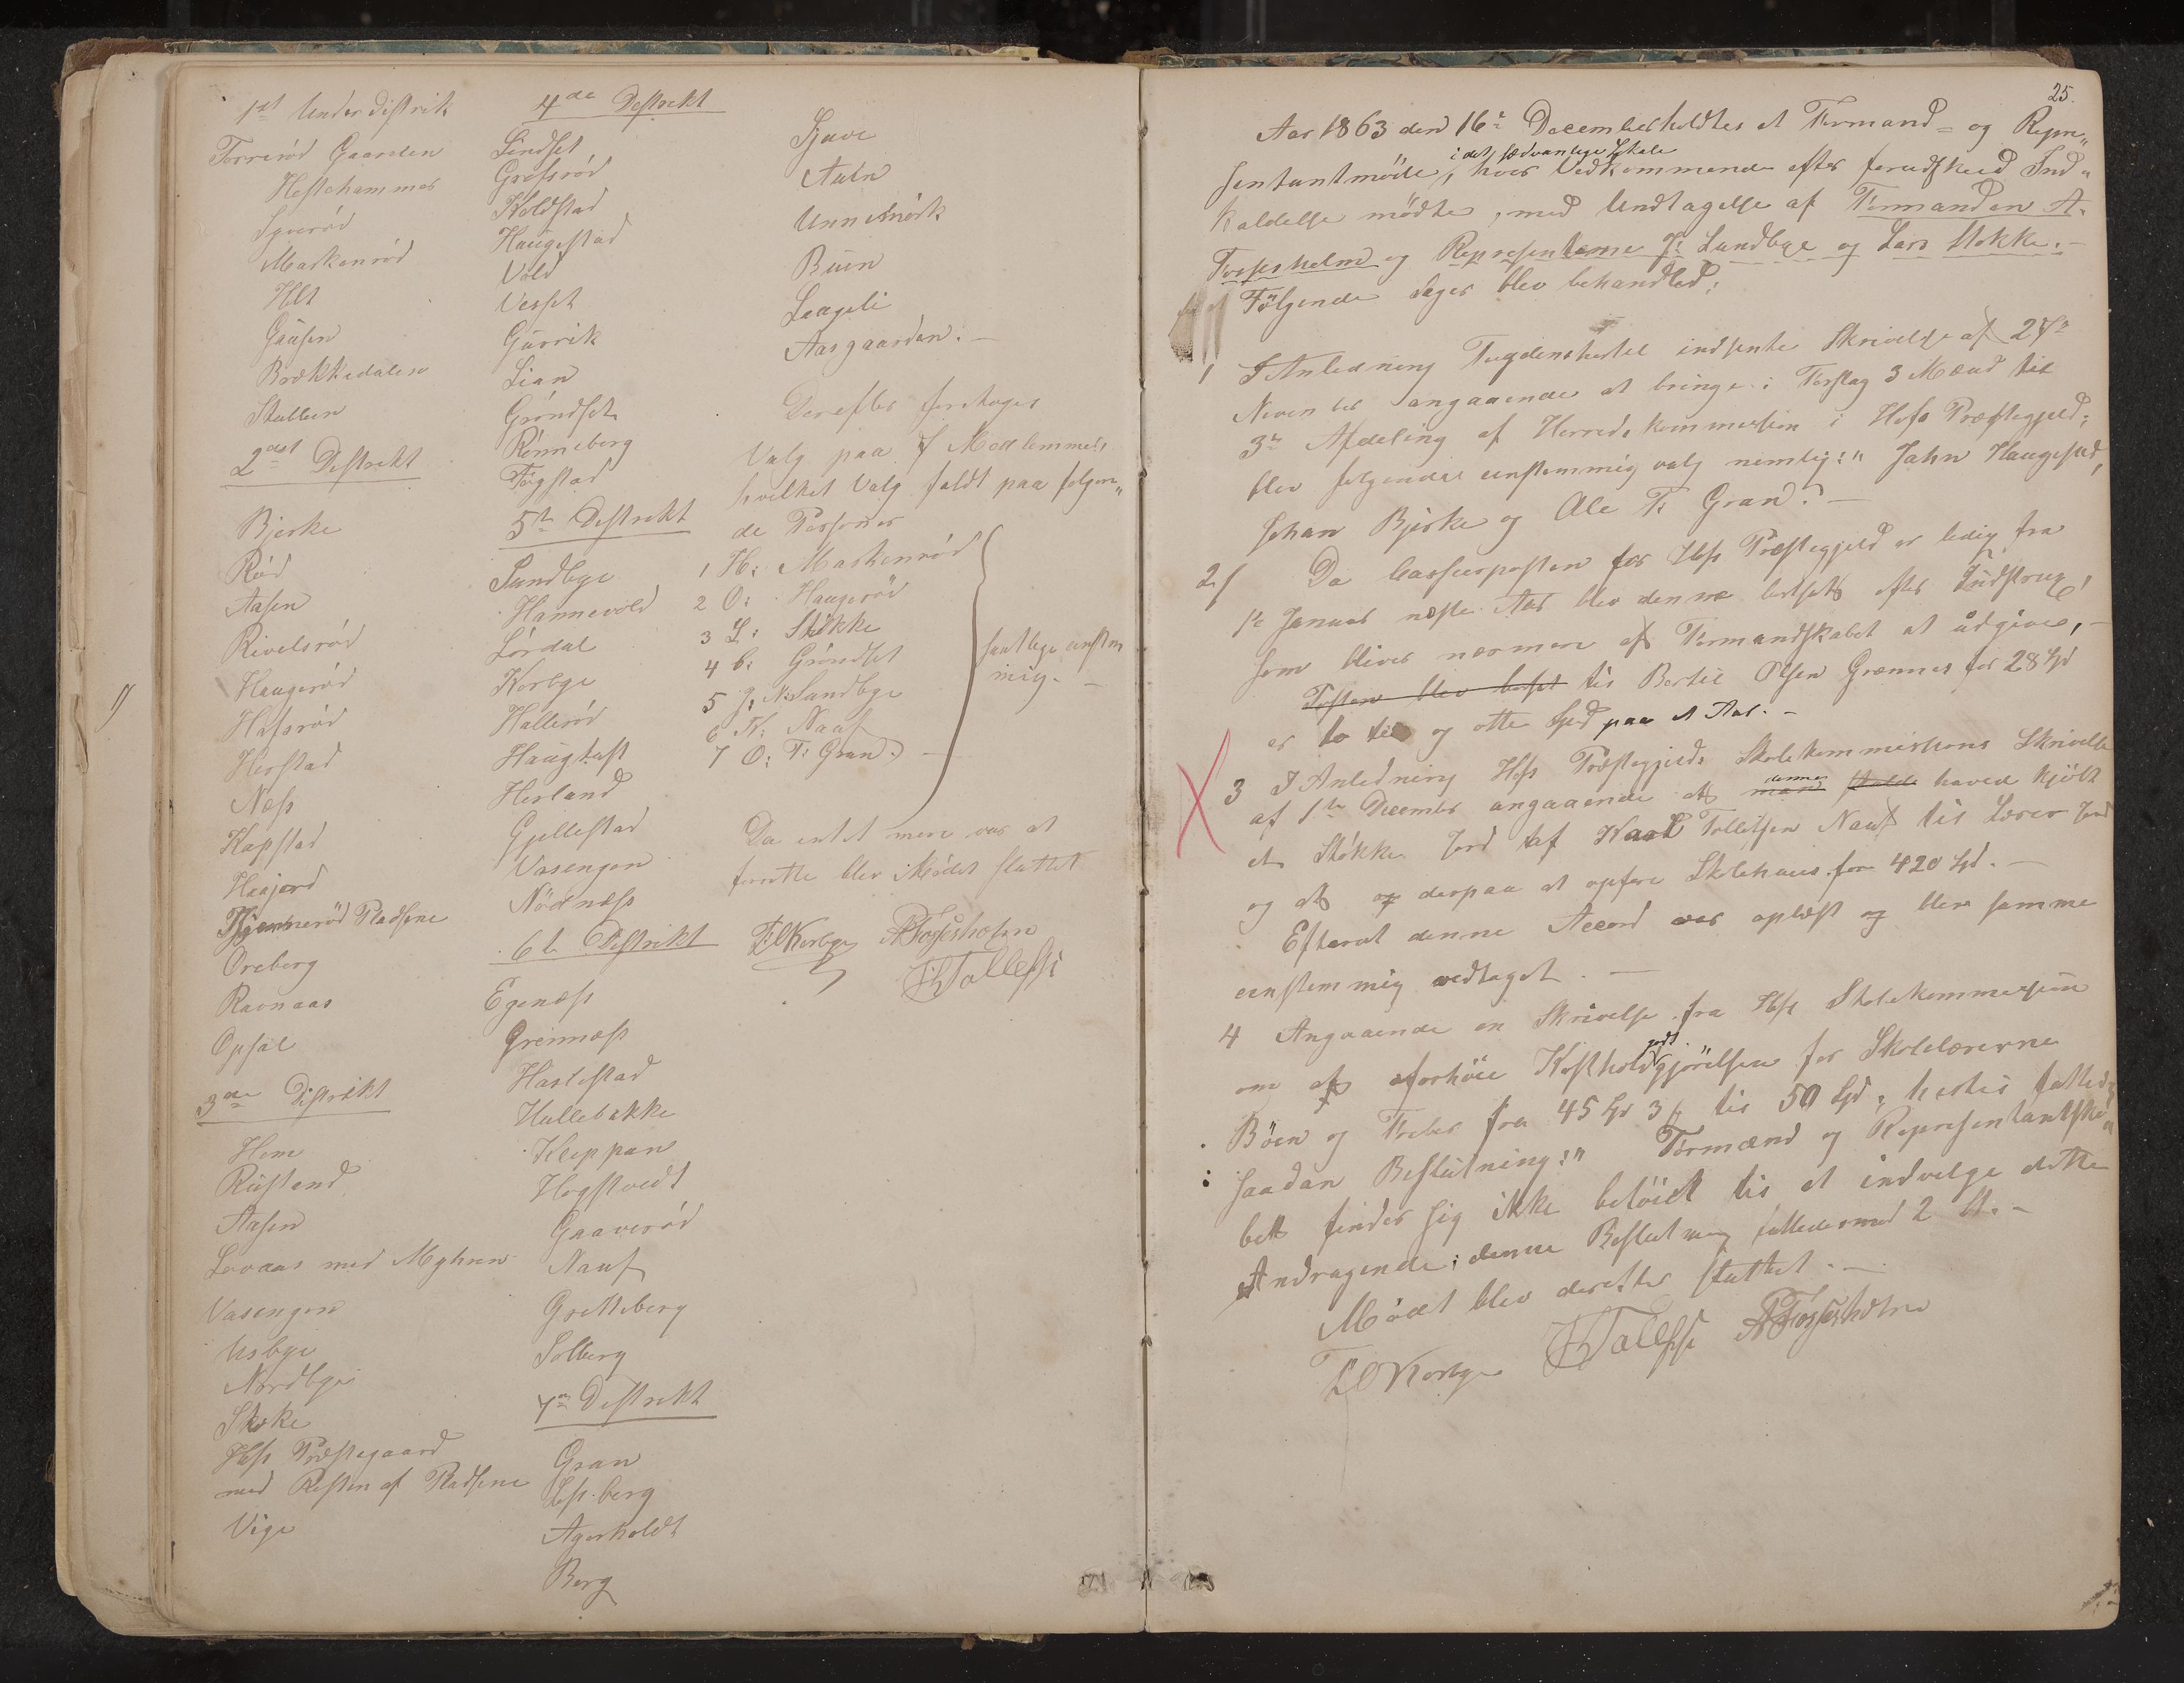 1st Underdistrik
Torrerød Gaarden
Hestehammer
Maskenrød
Holt
Gausen
Brækkedalen
Stulleen
2det Distrekt
Bjerke
Rød
Aasen
Rivelsrød
Haugerød
Hafsrød
Herstad
Næss
Kapstad
Haajord
Pladsene
Oreberg
Ravnaas
Opsal
3de Distrikt
Hem
Rustand
Aasen
Lovaas med Myhren
Vasengen
Usbye
Nordbye
Stoke
Hofs Præstegaard
med Resten af Pladsene
Vige
4de Destrekt
Lindset
Grefsrød
Koldstad
Haugestad
Vold
Vesset
Gurrik
Lian
Grøndset
Rønneberg
Fogstad
5te Destrekt
Sundbye
Hannevold
Lørdal
Korbye
Hallerød
Haugtuft
Herland
Gjellestad
Vasengen
Nødnæss
6te Destrikt
Egenæss
Grennæss
Haslestad
Hullebakke
Kleppan
Hogstvedt
Gaaserød
Nauf
Gretteberg
Solberg
7de Destrekt
Gran
Lefsberg
Agerholdt
Berg
Sjuve
Auln
Unnesnørk
Buen
Laageli
Aasgaarden.
Derefter foretoges
Valg paa 7 Medlemmer
hvilket Valg faldt paa følgen„
de Personer
1 H: Maskenrød
2 O: Haugerød
3 L: Stokke
4 C: Grøndset
5 J. N. Sundbye
6 K: Nauf
7 O: T: Gran.
samtlige eenstem
mig. —
Da entet mere var at
forrette blev Mødet sluttet
T. O. Korbye A Fossesholm
Tollefs
25.
Aar 1863 den 16de December holdtes et Formand- og Repre„
sentantmøde i det sædvanlige Lokale, hvor Vedkommende efter forudskeed Ind„
kaldelse mødte, med Undtagelse af Formanden A.
Fossesholm og Representerne J: Sundbye og Lars Stokke. —
Følgende Sager blev behandled:
1 I Anledning Fogdens hertel indsente Skrivelse af 27de
November angaaende at bringe i Forslag 3 Mænd til
3de Afdeling af Herredskommission i Hofs Præstegjeld;
blev følgende eenstemmig valg nemlig: „ Jahn Haugestad,
Johan Bjerke og Ole T. Gran. —
2/ Da Casseerposten for Hofs Præstegjeld er ledig fra
1te Januar næste Aar blev denne bortsat efter Indstrux,
som bliver nærmere af Formandskabet at udgive, —
Posten blev bortsat til Bertil Olsen Grennes for 28 Spd
er to ti og otte Spd paa et Aar. —
3 I Anledning Hofs Præstegjelds Skolekommissions Skrivelse
af 1ste December angaaende at denne haved kjøbt
et Støkke Jord af Kaal Tollefsen Nauf til Lærer Jord
og at derpaa at opføre Skolehuus for 420 Spd. —
Efterat denne Accord var oplæst og blev samme
eenstemmig vedtaget. —
4 Angaaende en Skrivelse fra Hofs Skolekommession
om at forhøie Kostholdgodtgjørelsen for Skolelærerne
Bøen og Treber fra 45 Spd til 50 Spd; hertil fatted
saadan Beslutning: „ Formænd og Representantska„
bet finder sig ikke beføiet til at indvelge dette
Andragende; denne Beslutning fattedes med 2 St. —
Mødet blev derefter sluttet. —
T. O. Korbye Tollefs A Fossesholm